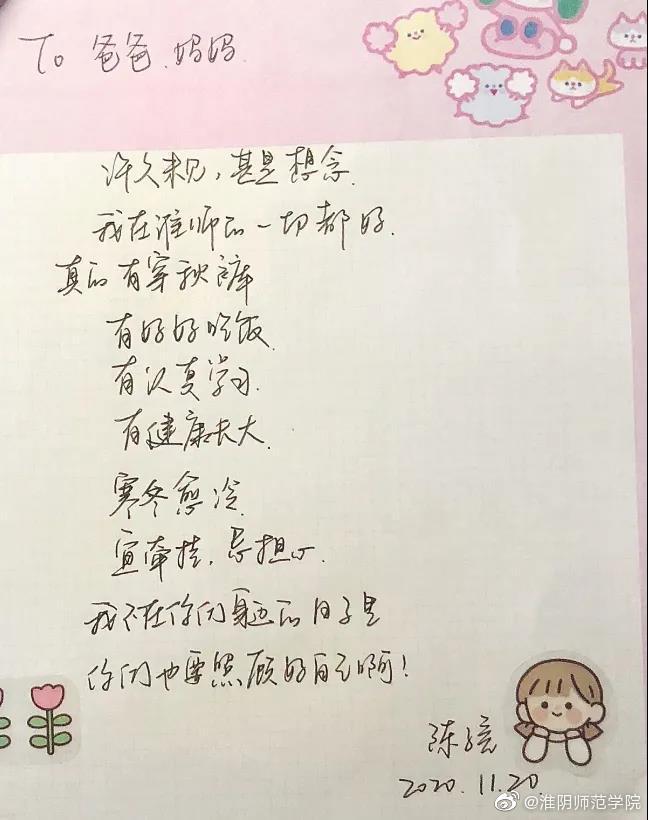 To 爸爸、妈妈
许久未见，甚是想念.
我在淮师的一切都好.
真的有穿秋裤
有好好吃饭
有认真学习.
有健康长大.
寒冬愈冷
宜牵挂，忌担心.
我不在你们身边的日子里
你们也要照顾好自己啊！
陈
2020.11.20.
@淮阴师范学院